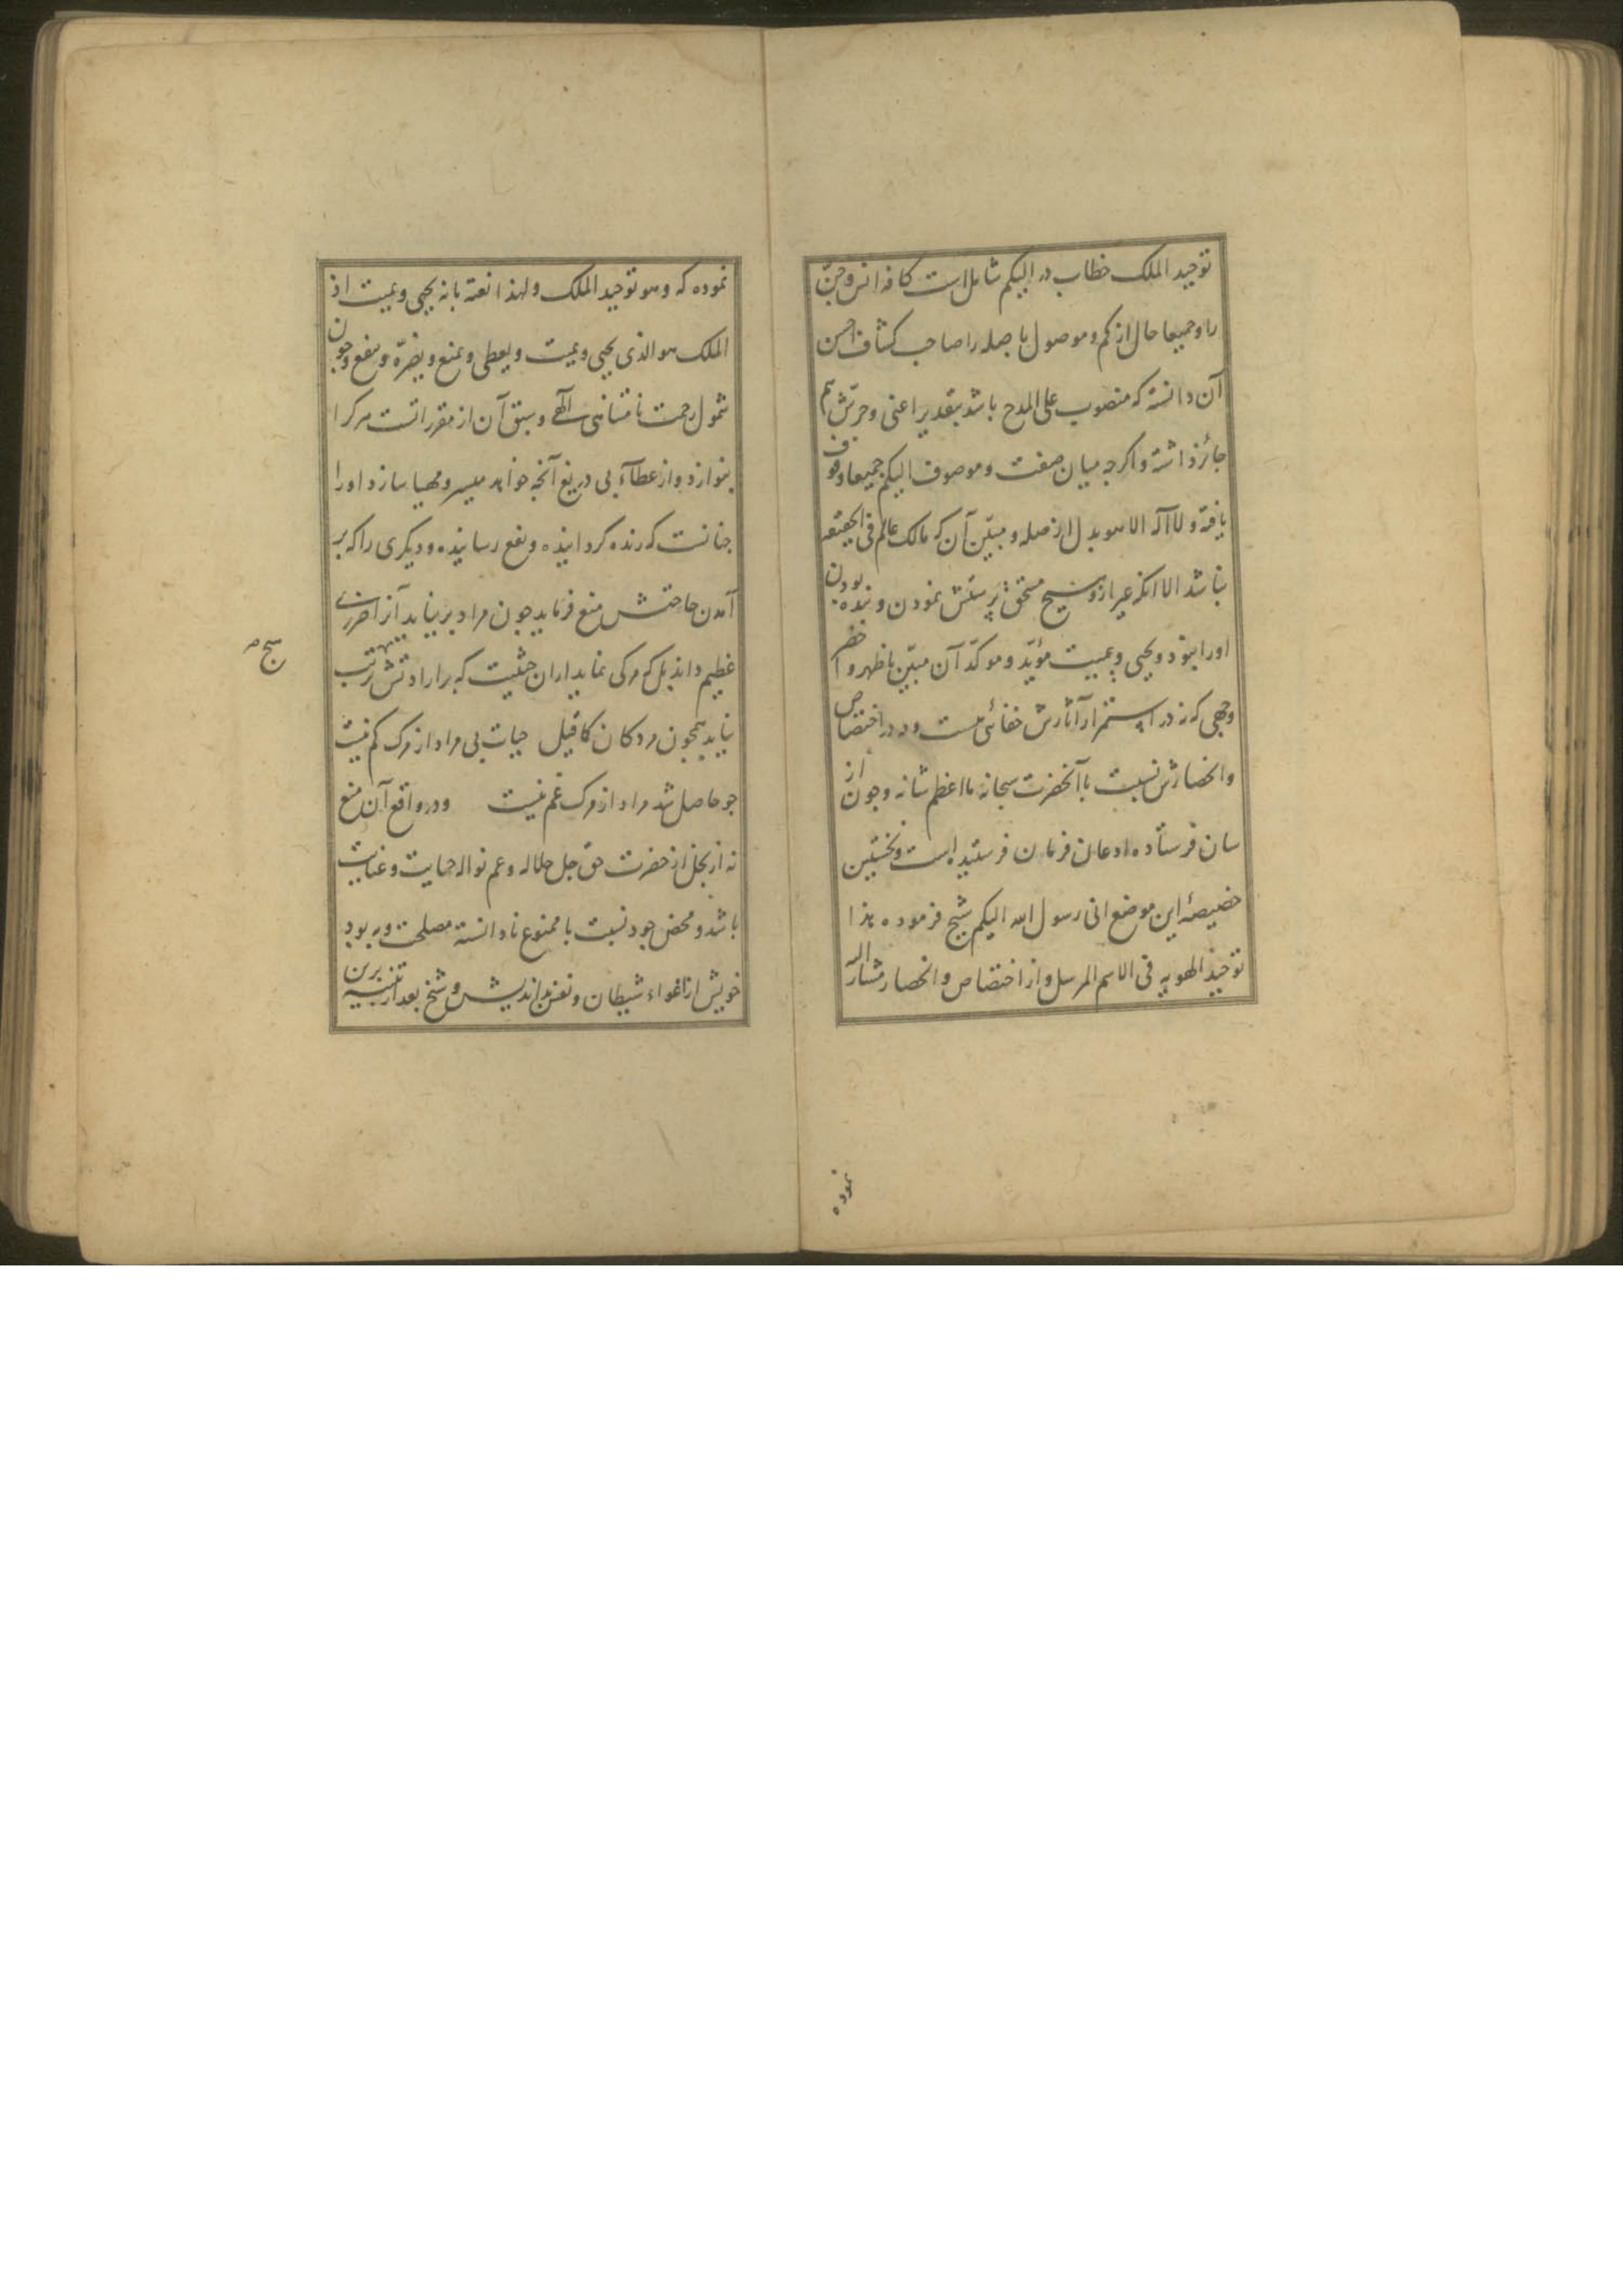 توحید الملک خطاب در الیکم شامل است کافه انس و جن
را و جمیعا حال از کم و موصول با صله را صاحب کشاف احسن
آن دانسته که منصوب علی المدح باشد بتقدیر اعنی و جرّش هم
جائز داشته و اکرچه میان صفت و موصوف الیکم جمیعا وقوف
یافته و لا اله الا هو بدل از صله و مبیّن آن که مالک عالم فی الحقیقه
نباشد الا انکه غیر ازو هیچ مستحق پرستش نمودن و بنده بودن
او را نبود و یحیی و یمیت مؤیّد و موکّد آن مبیّن با ظهر و اخصر
وجهی که نه در استمرار آثارش خفائی هست و نه در اختصاص
و انحصارش نسبت با آنحضرت سبحانه ما اعظم شانه و چون از
سان فرستاده اذعان فرمان فرستنده است و نخستین
خصیصهٔ این موضع انی رسول الله الیکم شیخ فرموده هذا
توحید الهویه فی الاسم المرسل و از اختصاص و انحصار مشار الیه
نموده
نموده که و هو توحید الملک و لهذا نعته بانه یحیی و یمیت اذ
الملک هو الذی یحیی و یمیت و یعطی و یمنع و یضرّ و ینفع و چون
شمول رحمت نامتناهی الٓهی و سبق آن از مقرراتست هر کرا
بنوازد و از عطاء بی دریغ آنچه خواهد میسر و مهیا سازد او را
چنانست که زنده کردانیده و نفع رسانیده و دیکری را که بر
آمدن حاجتش منع فرماید چون مراد بر نیاید آنرا ضرری
عظیم داند بل که مرکی نماید از آن حیثیت که بر ارادتش ترتب
هیچ
نیاید همچون مردکان کما قیل حیات بی مراد از مرک کم نیست
چو حاصل شد مراد از مرک غم نیست و در واقع آن منع
نه از بخل از حضرت حق جل جلاله و عم نواله حمایت و عنایت
باشد و محض جود نسبت با ممنوع نادانسته مصلحت و بهبود
خویش از اغواء شیطان و نفس بداندیش و شیخ بعد از تنبیه برین